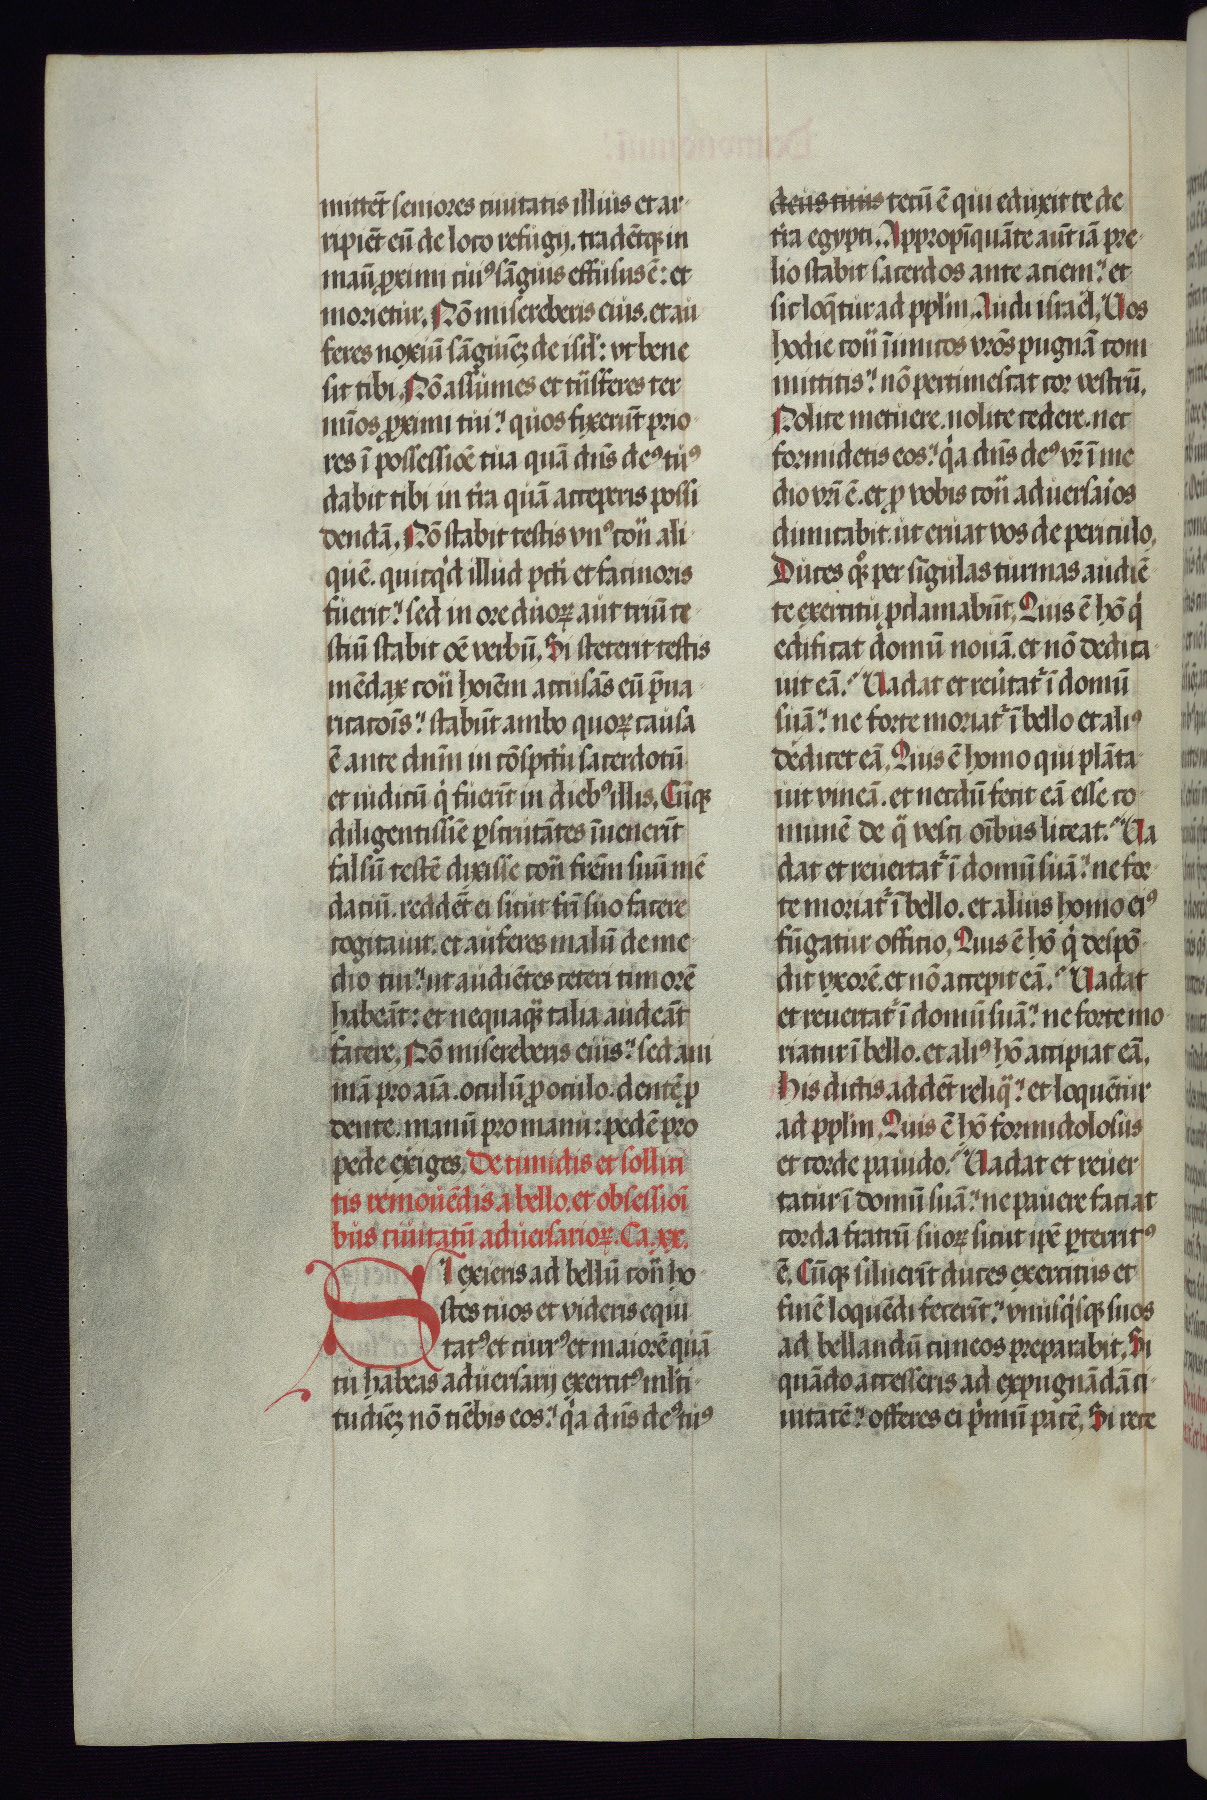 mittēt seniores ciuitatis illius et ar
ripiēt eū de loco refugij. tradētqȝ in
manꝰ ꝓximi cuiꝰ sāguis effusus ē: et
morietur. Nō misereberis eius. et au
feres noxiū sāguinēȝ de isrl: vt bene
sit tibi. Nō assumes et trāsferes ter
minos ꝓximi tui: quos fixerūt prio
res ī possessiōe tua quā dn̄s deꝰ tuꝰ
dabit tibi in tr̄a quā acceperis possi
dendā. Nō stabit testis vnꝰ cont̄ ali
quē. quicq'd illud pctī et facinoris
fuerit: sed in ore duoꝝ aut triū te
stiū stabit oē verbū. Si steterit testis
mēdax cont̄ hoīem accusās eū p̄ua
ricatōis: stabūt ambo quoꝝ causa
ē ante dnm̄ in cōspectu sacerdotū
et iudicū q' fuerīt in diebꝰ illis. Cūqȝ
diligentissīe ꝑscrutātes īuenerīt
falsū testē dixisse cont̄ frēm suū mē
daciū. reddēt ei sicut frī suo facere
cogitauit. et auferes malū de me
dio tui: ut audiētes ceteri timorē
habeāt: et nequaqȝ talia audeāt
facere. Nō misereberis eius: sed ani
mā pro aīa. oculū ꝓ oculo. dentē ꝓ
dente. manū pro manu: pedē pro
pede exiges. De timidis et sollici
tis remouēdis a bello. et obsessiōi
bus ciuitatū aduersarioꝝ. Ca. xx.
SI exieris ad bellū cont̄ ho
stes tuos et videris equi
tatꝰ et currꝰ et maiorē quā
tu habeas aduersarij exercitꝰ ml̄ti
tudinēȝ nō timēbis eos: q'a dn̄s deꝰ tuꝰ
deus tuus tecū ē qui eduxit te de
tr̄a egypti. Appropīquāte aūt iā pre
lio stabit sacerdos ante aciem: et
sic loq̄tur ad ppl̄m. Audi israēl. Uos
hodie cont̄ īimicos vrōs pugnā com
mittitis: nō pertimescat cor vestrū.
Nolite metuere. nolite cedere. nec
formidetis eos: q'a dn̄s deꝰ vr̄ ī me
dio vr̄i ē. et ꝓ vobis cont̄ aduersa'ios
dimicabit. ut eruat vos de periculo.
Duces qꝫ per sīgulas turmas audiē
te exercitu ꝓclamabūt. Quis ē hō q'
edificat domū nouā. et nō dedica
uit eā. Uadat et reu'tat' ī domū
suā: ne forte moriat' ī bello et aliꝰ
dedicet eā. Quis ē homo qui plāta
uit vineā. et necdū fecit eā esse co
munē de q̄ vesci oībus liceat. Ua
dat et reuertat' ī domū suā: ne for
te moriat' ī bello. et alius homo eiꝰ
fūgatur officio. Quis ē hō q' despō
dit vxorē. et nō accepit eā. Uadat
et reuertat' ī domū suā: ne forte mo
riatur ī bello. et aliꝰ hō accipiat eā.
His dictis addēt reliq̄: et loquētur
ad ppl̄m. Quis ē hō formidolosus
et corde pauido. Uadat et reuer
tatur ī domū suā: ne pauere faciat
corda fratrū suoꝝ sicut ip̄e ꝑterritꝰ
ē. Cūqȝ siluerīt duces exercitus et
finē loquēdi fecerīt: vnusq'sqȝ suos
ad bellandū cuneos preparabit. Si
quādo accesseris ad expugnādā ci
uitatē: offeres ei p'mū pacē. Si rece